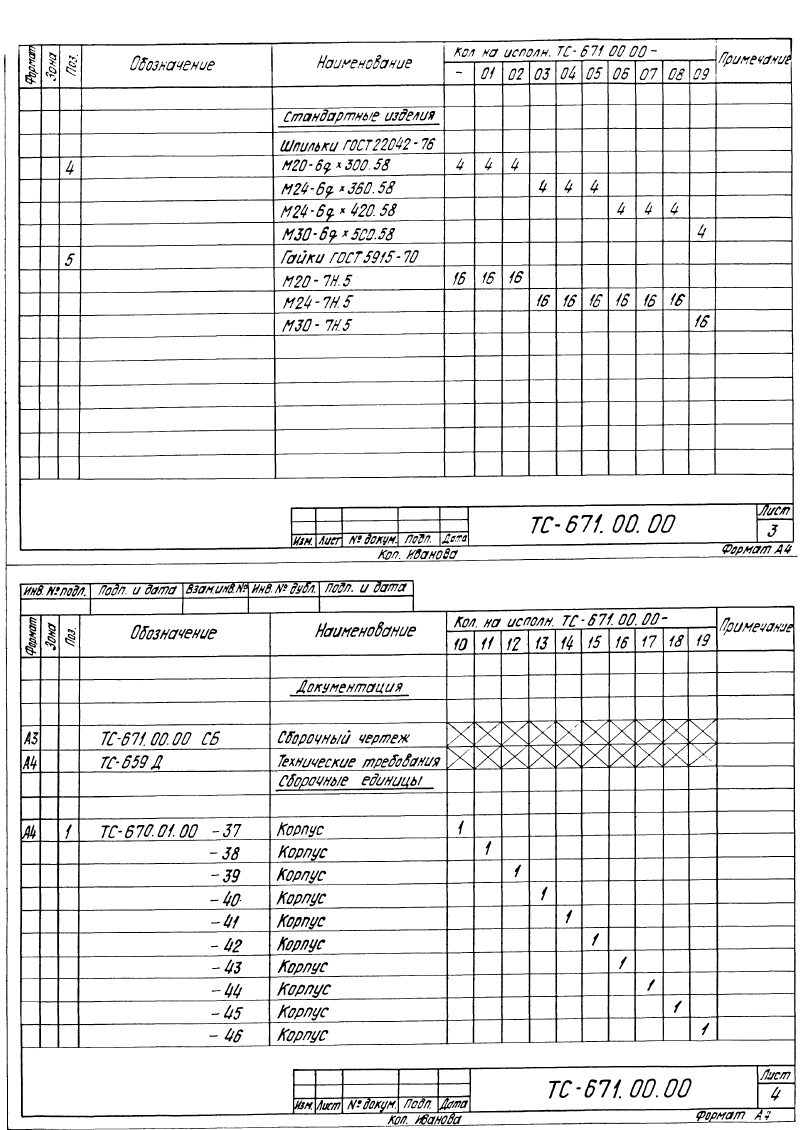 Формат Зона Поз. Обозначение Наименование Кол на исполн. ТС-671 00 00 - Примечание
- 01 02 03 04 05 06 07 08 09
Стандартные изделия
Шпильки ГОСТ 22042-76
4 М20-6g × 300.58 4 4 4
М24-6g × 360.58 4 4 4
М24-6g × 420.58 4 4 4
М30-6g × 500.58 4
5 Гайки ГОСТ 5915-70
М20-7Н.5 16 16 16
М24-7Н.5 16 16 16 16 16 16
М30-7Н.5 16
Изм. Лист № докум. Подп. Дата ТС-671.00.00 Лист 3
Коп. Иванова Формат А4
Инв. № подл. Подп. и дата Взам.инв.№ Инв. № дубл. Подп. и дата
Формат Зона Поз. Обозначение Наименование Кол. на исполн. ТС-671.00.00- Примечание
10 11 12 13 14 15 16 17 18 19
Документация
А3 ТС-671.00.00 СБ Сборочный чертеж
А4 ТС-659 Д Технические требования
Сборочные единицы
А4 1 ТС-670.01.00 -37 Корпус 1
-38 Корпус 1
-39 Корпус 1
-40 Корпус 1
-41 Корпус 1
-42 Корпус 1
-43 Корпус 1
-44 Корпус 1
-45 Корпус 1
-46 Корпус 1
Изм. Лист № докум. Подп. Дата ТС-671.00.00 Лист 4
Коп. Иванова Формат А4